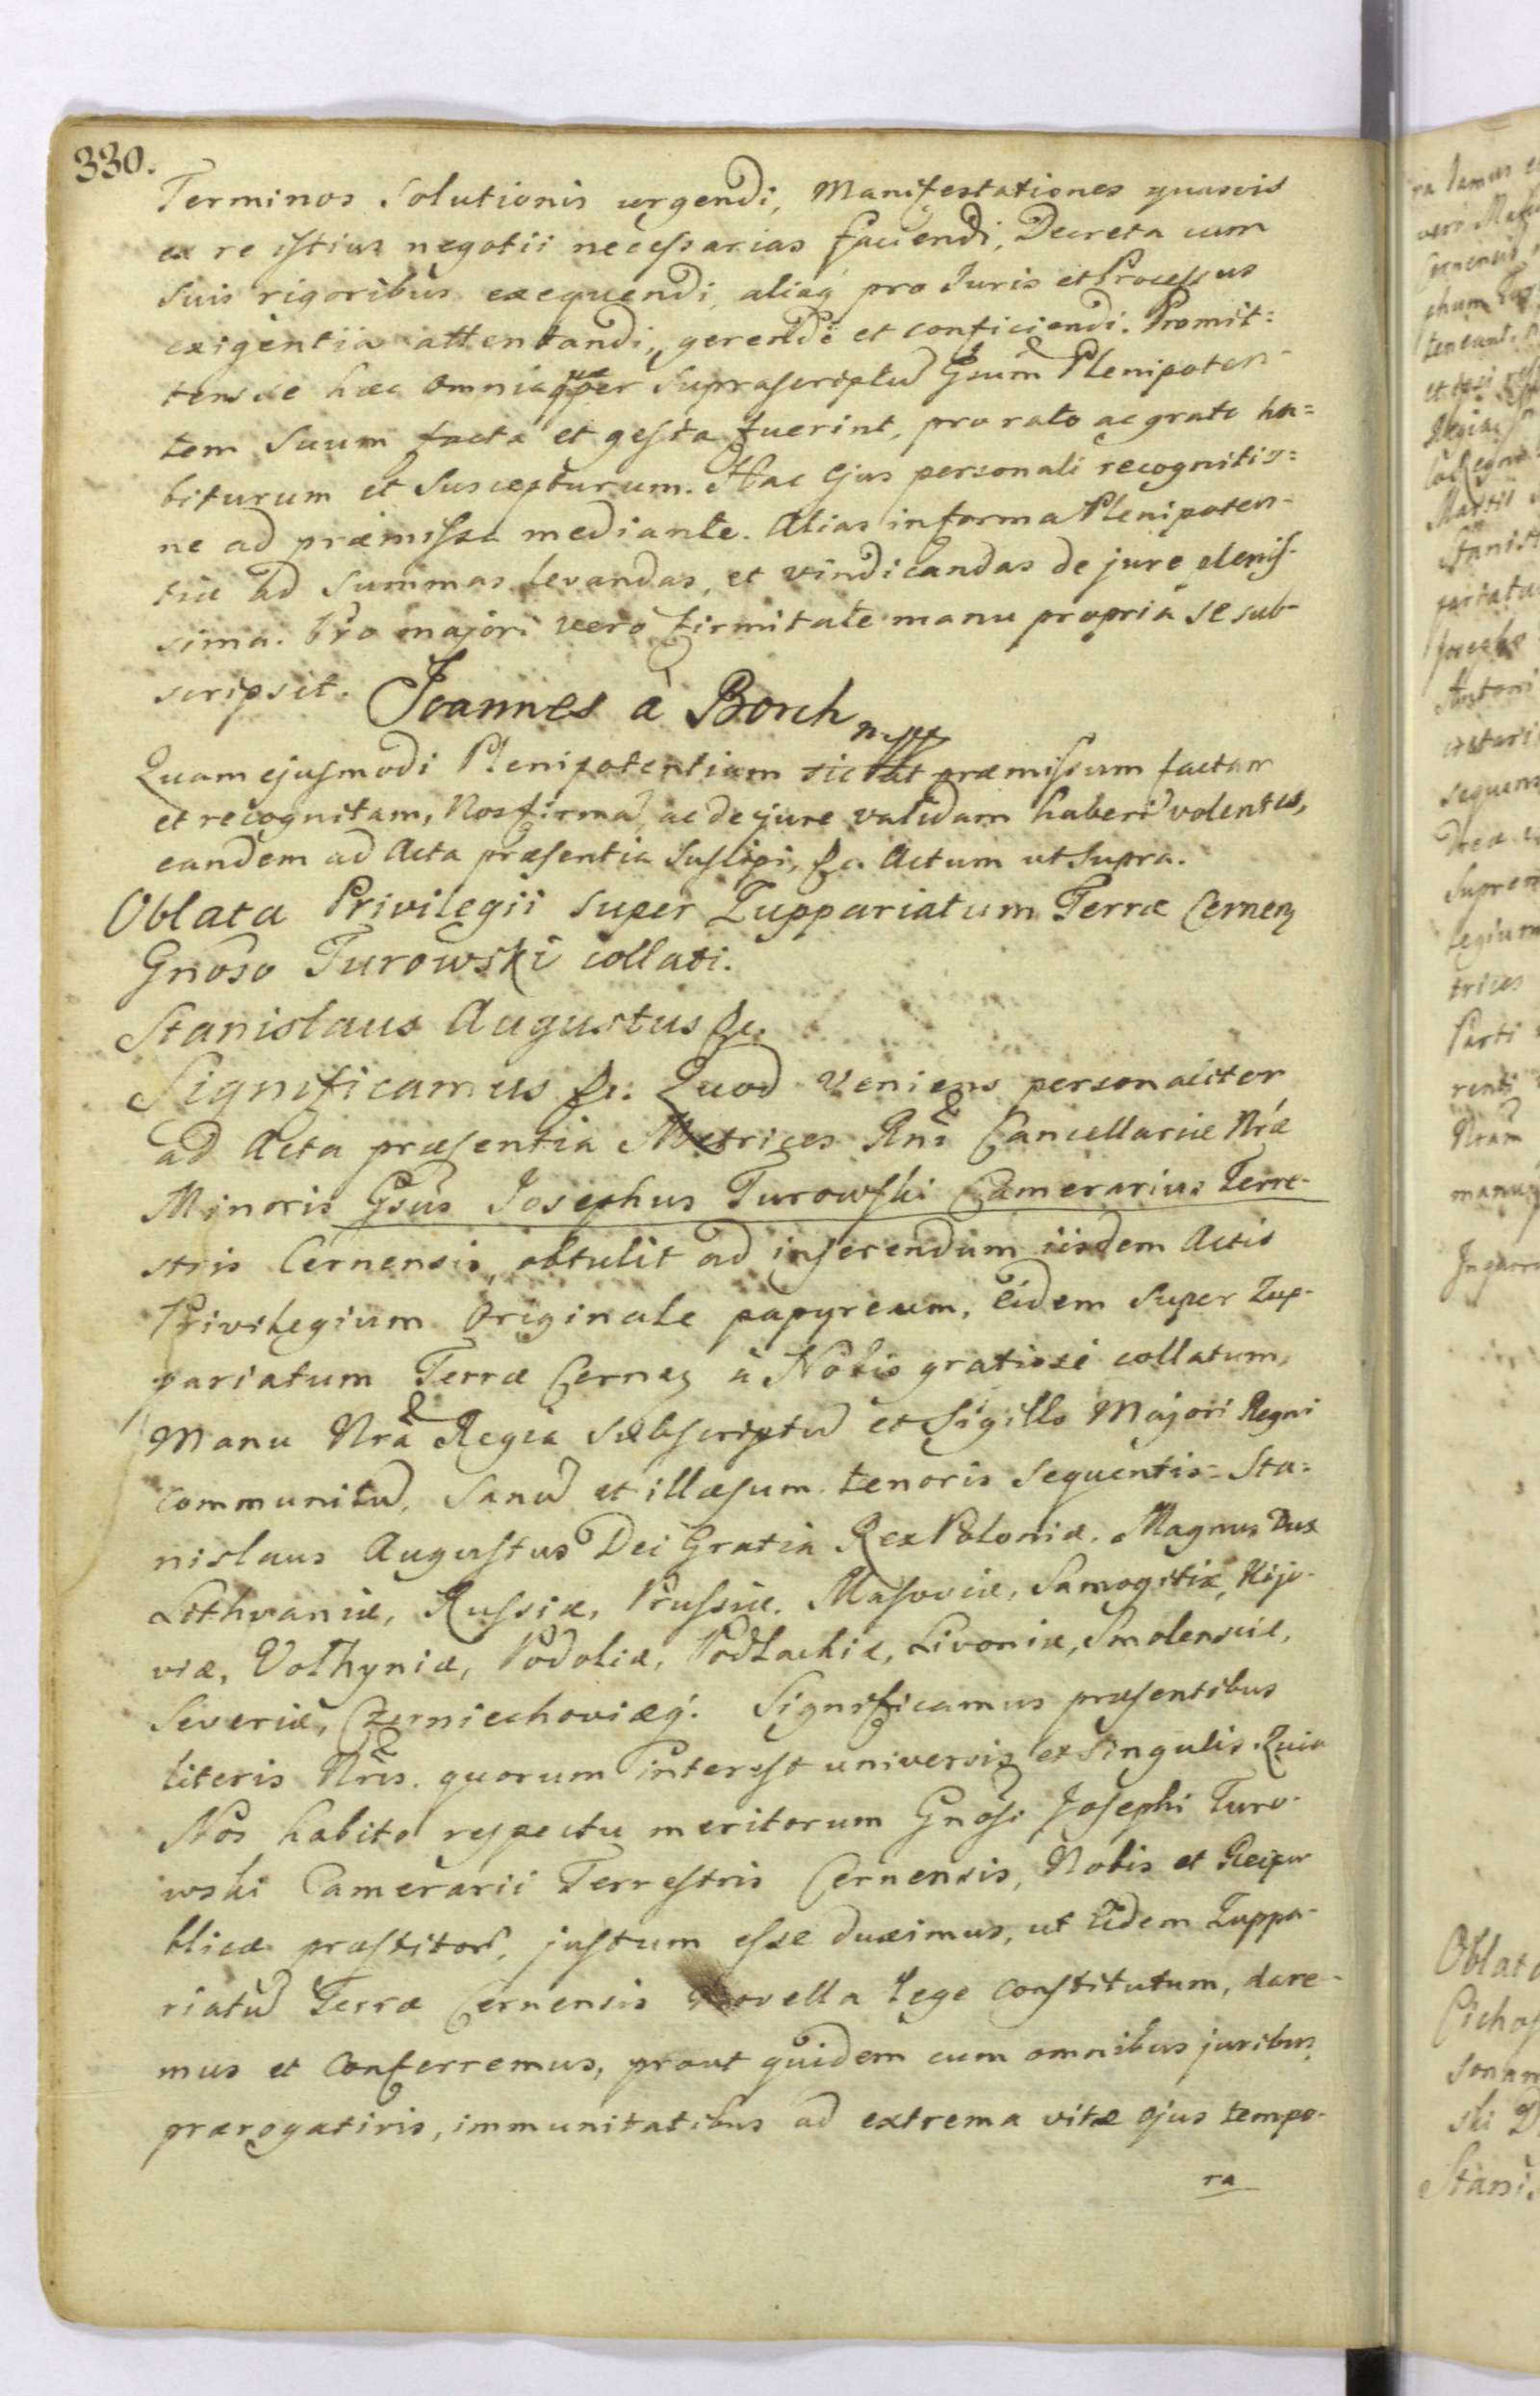 330.
Terminos Solutionis urgendi, Manifestationes quasvis
ex re istius negotii necessarias faciendi, Decreta cum
suis rigoribus exequendi, aliaq pro Juris et Processus
exigentia attentandi, gerendi et conficiendi. Promit=
tens se hæc omnia quæ per supra scriptū Gsum Plenipoten-
tem Suum facta et gesta fuerint, pro rato ac grato ha=
biturum et Suscepturum. Hac Ejus personali recognitio=
ne ad præmissa mediante. Alias in forma Plenipoten-
tiæ ad Summas levandas, et vindicandas de jure pleniss-
sima. Pro majori vero firmitate manu propria se sub-
scripsit. Joannes à Borch mpp
Quam ejusmodi Plenipotentiam sic ut præmissum factam
et recognitam, Nos firmā, ac de jure validam haberi volentes,
eandem ad Acta præsentia Suscipi, &c. Actum ut Supra.
Oblata Privilegii super Zuppariatum Terræ Cernen
Gnoso Turowski collati.
Stanislaus Augustus &c.
Significamus &c: Quod Veniens personaliter
ad Acta præsentia Metrices Rni Cancellariæ Nræ
Minoris Gsus Josephus Turowski Camerarius Terre-
stris Cernensis, obtulit ad inserendum iisdem Actis
Privilegium Originale papyreum, Eidem Super Zup-
pariatum Terræ Cernen à Nobis gratiose collatum,
Manu Nra Regia Subscriptū et Sigillo Majori Regni
communitū, Sanū et illæsum tenoris sequentis = Sta=
nislaus Augustus Dei Gratia Rex Poloniæ. Magnus Dux
Lithvaniæ, Russiæ, Prussiæ. Masoviæ, Samogitiæ, Kijo-
viæ, Volhyniæ, Podoliæ, Podlachiæ, Livoniæ, Smolensciæ,
Severiæ, Czerniechoviæq. Significamus præsentibus
literis Nris. quorum interest universis et singulis. Quia
Nos habito respectu meritorum Gnosi Josephi Turo-
wski Camerarii Terrestris Cernensis, Nobis et Reipu
blicæ præstitorū, justum esse duximus, ut Eidem Zuppa-
riatū Terræ Cernensis Novella lege Constitutum, dare-
mus et Conferremus, prout quidem cum omnibus juribus,
prærogativis, immunitatibus ad extrema vitæ ejus tempo-
ra